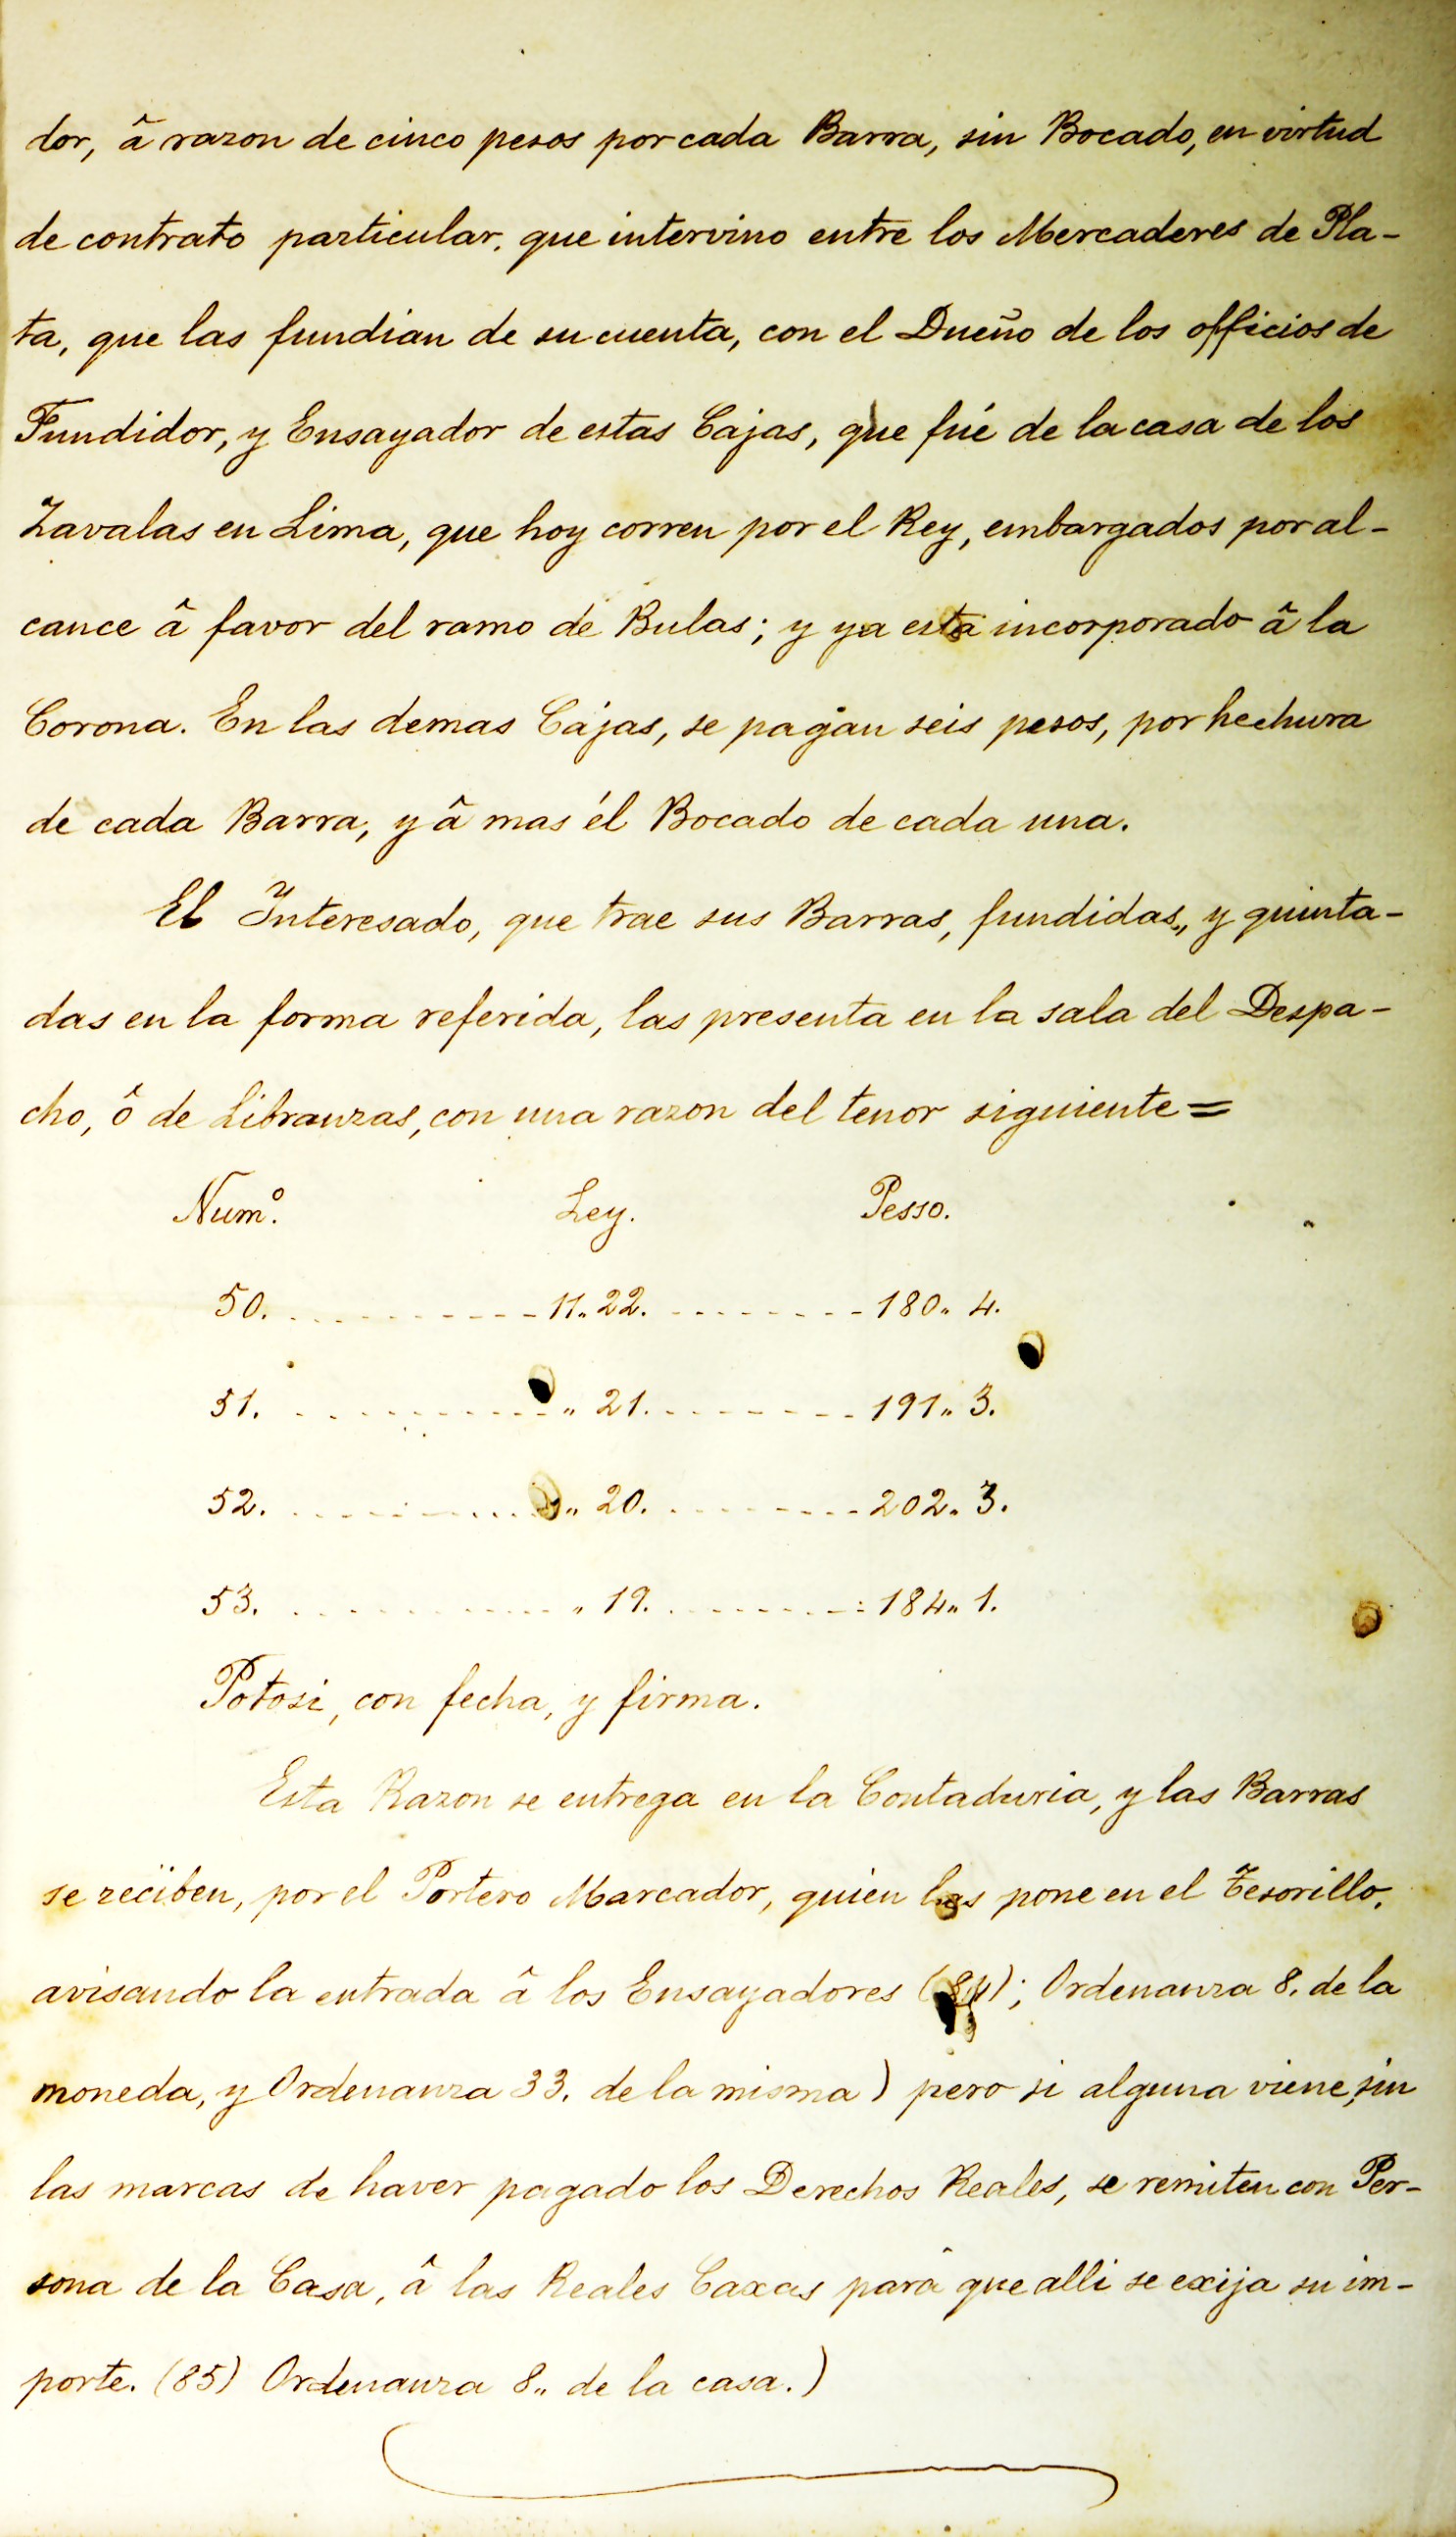 dor, â razon de cinco pesos por cada Barra, sin Bocado, en virtud
de contrato particular, que intervino entre los Mercaderes de Pla-
ta, que las fundian de su cuenta, con el Dueño de los officios de
Fundidor, y Ensayador de estas Cajas, que fué de la casa de los
Zavalas en Lima, que hoy corren por el Rey, embargados por al-
cance â favor del ramo de Bulas; y ya está incorporado â la
Corona. En las demas Cajas, se pagan seis pesos, por hechura
de cada Barra, y â mas él Bocado de cada una.
El Interesado, que trae sus Barras, fundidas, y quinta-
das en la forma referida, las presenta en la sala del Despa-
cho, ô de Libranzas, con una razon del tenor siguiente=
Numº. Ley. Pesso.
50. - - - - - - - - - - 11.. 22. - - - - - - - - 180.. 4.
51. - - - - - - - - - - .. 21. - - - - - - - - 191.. 3.
52. - - - - - - - - - - .. 20. - - - - - - - - 202.. 3.
53. - - - - - - - - - - .. 19. - - - - - - - - 184.. 1.
Potosi, con fecha, y firma.
Esta Razon se entrega en la Contaduria, y las Barras
se reciben, por el Portero Marcador, quien las pone en el Tesorillo,
avisando la entrada â los Ensayadores (84); Ordenanza 8. de la
moneda, y Ordenanza 33. de la misma) pero si alguna viene, sin
las marcas de haver pagado los Derechos Reales, se remiten con Per-
sona de la Casa, â las Reales Caxas parâ que alli se exija su im-
porte. (85) Ordenanza 8.. de la casa.)